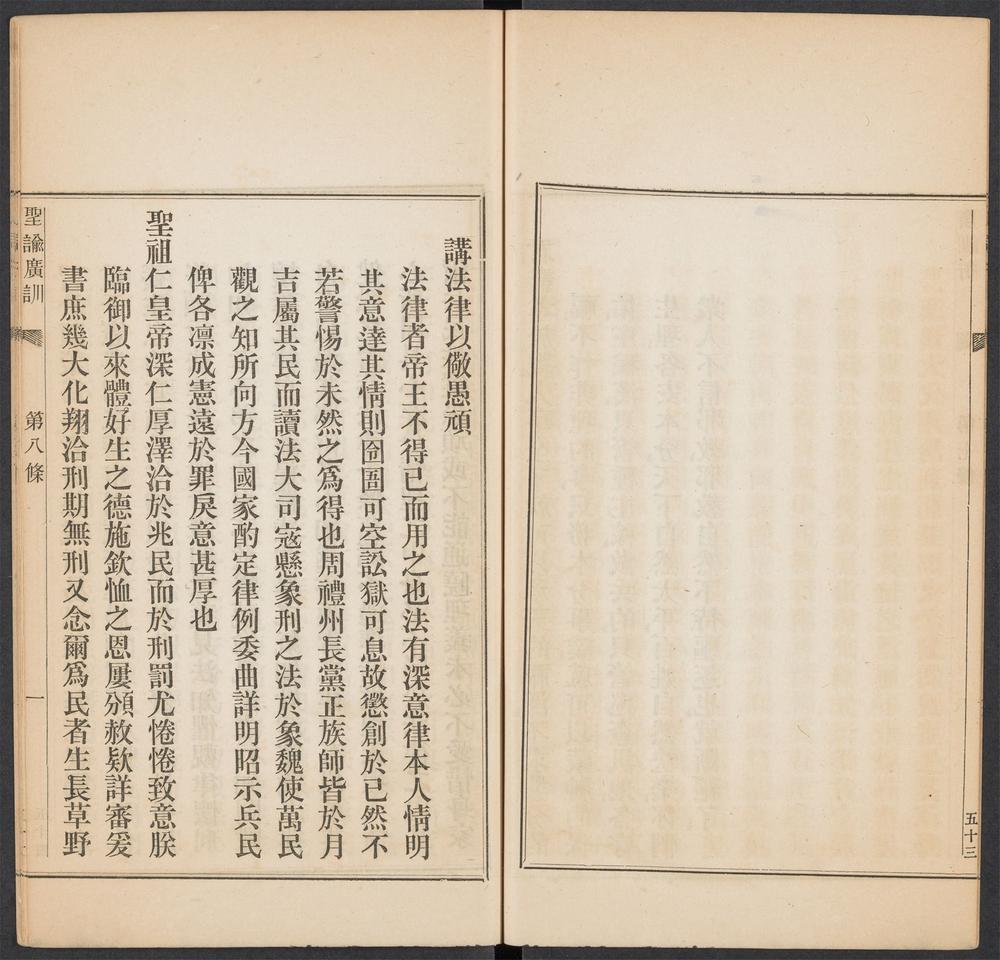 五十三
講法律以儆愚頑
法律者帝王不得已而用之也法有深意律本人情明
其意達其情則囹圄可空訟獄可息故懲創於已然不
若警惕於未然之爲得也周禮州長黨正族師皆於月
吉屬其民而讀法大司寇懸象刑之法於象魏使萬民
觀之知所向方今國家酌定律例委曲詳明昭示兵民
俾各凛成憲遠於罪戾意甚厚也
聖祖仁皇帝深仁厚澤洽於兆民而於刑罰尤惓惓致意朕
臨御以來體好生之德施欽恤之恩屢頒赦欵詳審爰
書庶幾大化翔洽刑期無刑又念爾爲民者生長草野
聖諭廣訓 第八條 一